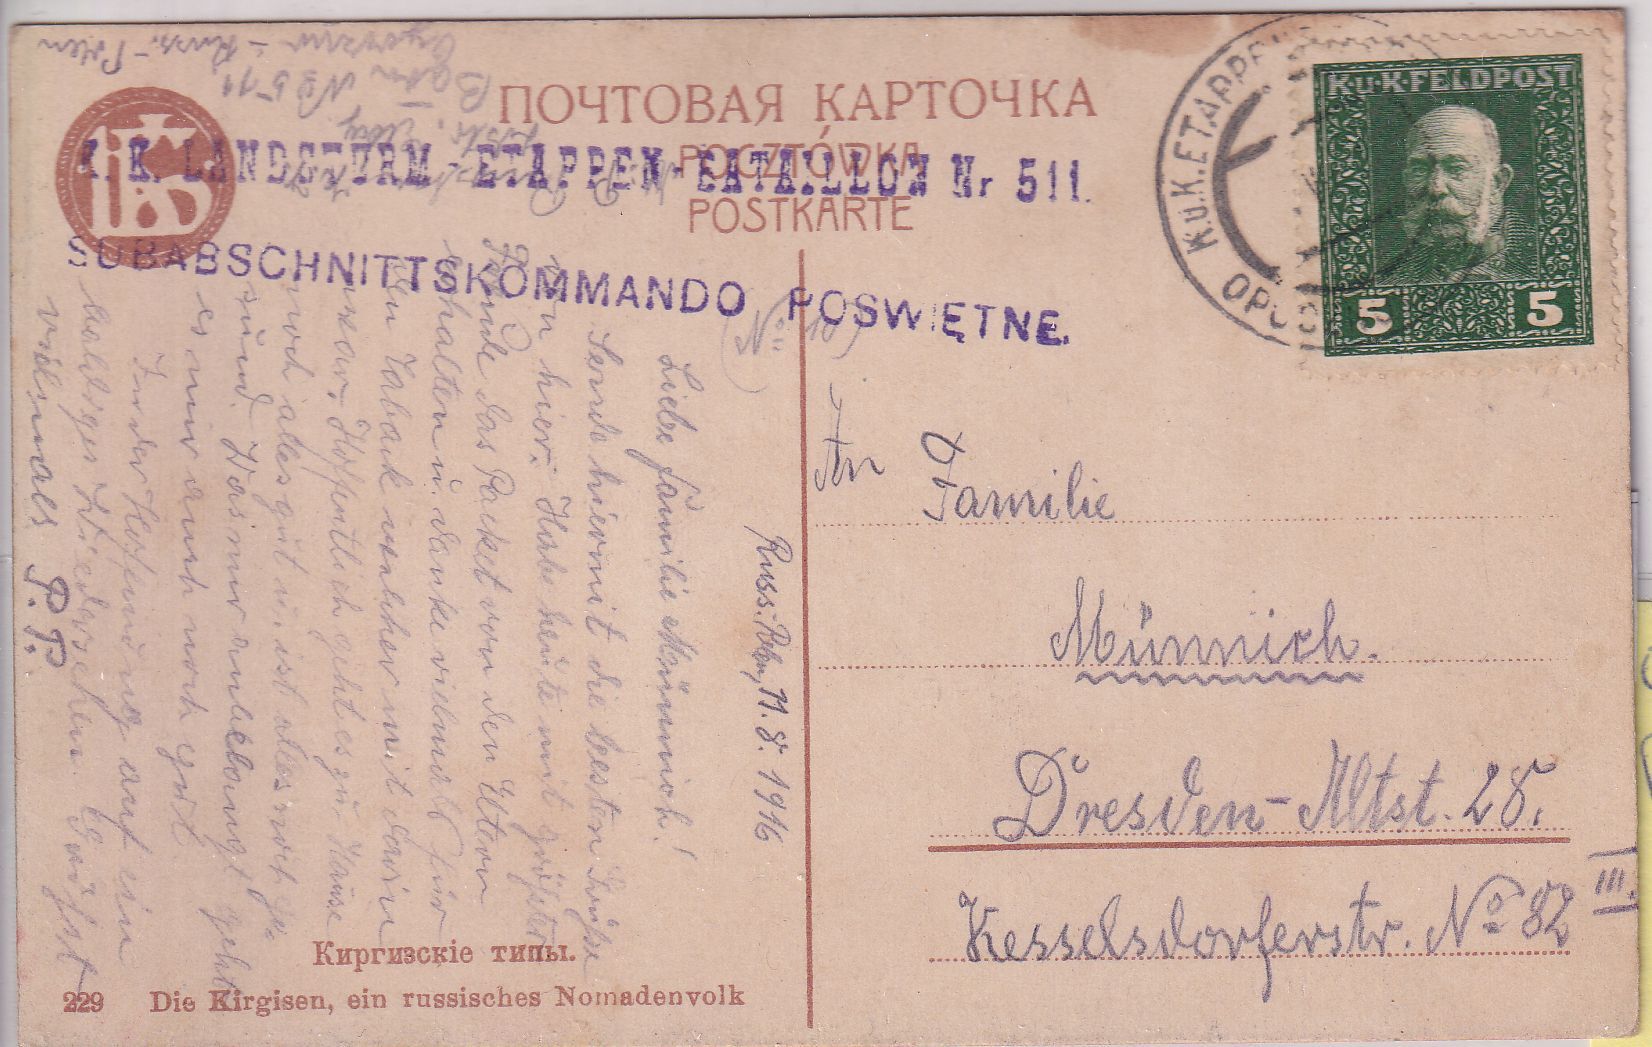 ПОЧТОВАЯ КАРТОЧКА
POCZTÓWKA
POSTKARTE
K. K. LANDSTURM-ETAPPEN-BATAILLON Nr 511.
SUBABSCHNITTSKOMMANDO POSWIĘTNE.
K.u.K. ETAPPEN
OPOC
K.u.K. FELDPOST
5 5
Russ.-Polen
Baon No 511
(No 18)
Russ. Polen, 11.8. 1916
Liebe Familie Münnich!
Sende hiermit die besten Grüße
von hier. Habe heute mit größter
Freude das Packet von den Eltern
erhalten u. danke vielmals für
den Tabak welcher mit darin
war. Hoffentlich geht es zu Hause
noch alles gut u. ist alles noch ge-
sund. Was mir anbelangt geht
es mir auch noch gut.
In der Hoffnung auf ein
baldiges Wiedersehen. Grüßt
vielmals P. P.
An Familie
Münnich.
Dresden-Altst. 28.
Kesselsdorferstr. No 82 III.
Киргизскіе типы.
229 Die Kirgisen, ein russisches Nomadenvolk